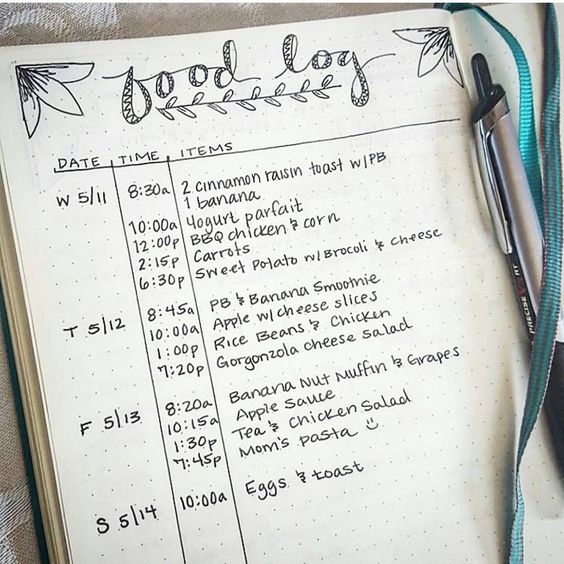 food log
DATE TIME ITEMS
W 5/11 8:30a 2 cinnamon raisin toast w/PB
1 banana
10:00a Yogurt parfait
12:00p BBQ chicken & corn
2:15p Carrots
6:30p Sweet Potato w/Brocoli & cheese
T 5/12 8:45a PB & Banana Smoothie
10:00a Apple w/cheese slices
1:00p Rice Beans & Chicken
7:20p Gorgonzola cheese Salad
F 5/13 8:20a Banana Nut Muffin & Grapes
10:15a Apple Sauce
1:30p Tea & Chicken Salad
7:45p Mom's pasta
S 5/14 10:00a Eggs & toast
PRECISE RT